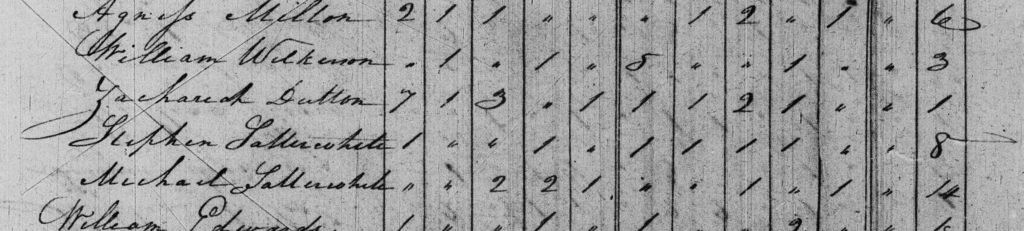 Agness Milton 2 1 1 " " " 1 2 " 1 " 6
William Wilkerson " 1 " 1 " 5 " " 1 " " 3
Zachariah Dutton 7 1 3 " 1 1 1 2 1 " " 1
Stephen Satterwhite 1 " " 1 " 1 1 1 1 " " 8
Michael Satterwhite " " 2 2 1 " " 1 " 1 " 14
William Edwards 1 " " 1 " 1 " " 2 " "